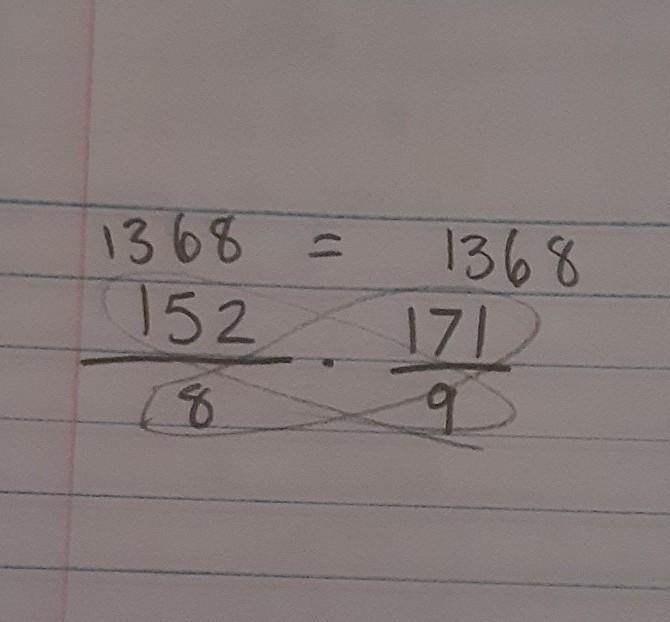 1368 = 1368
152 · 171
8 9